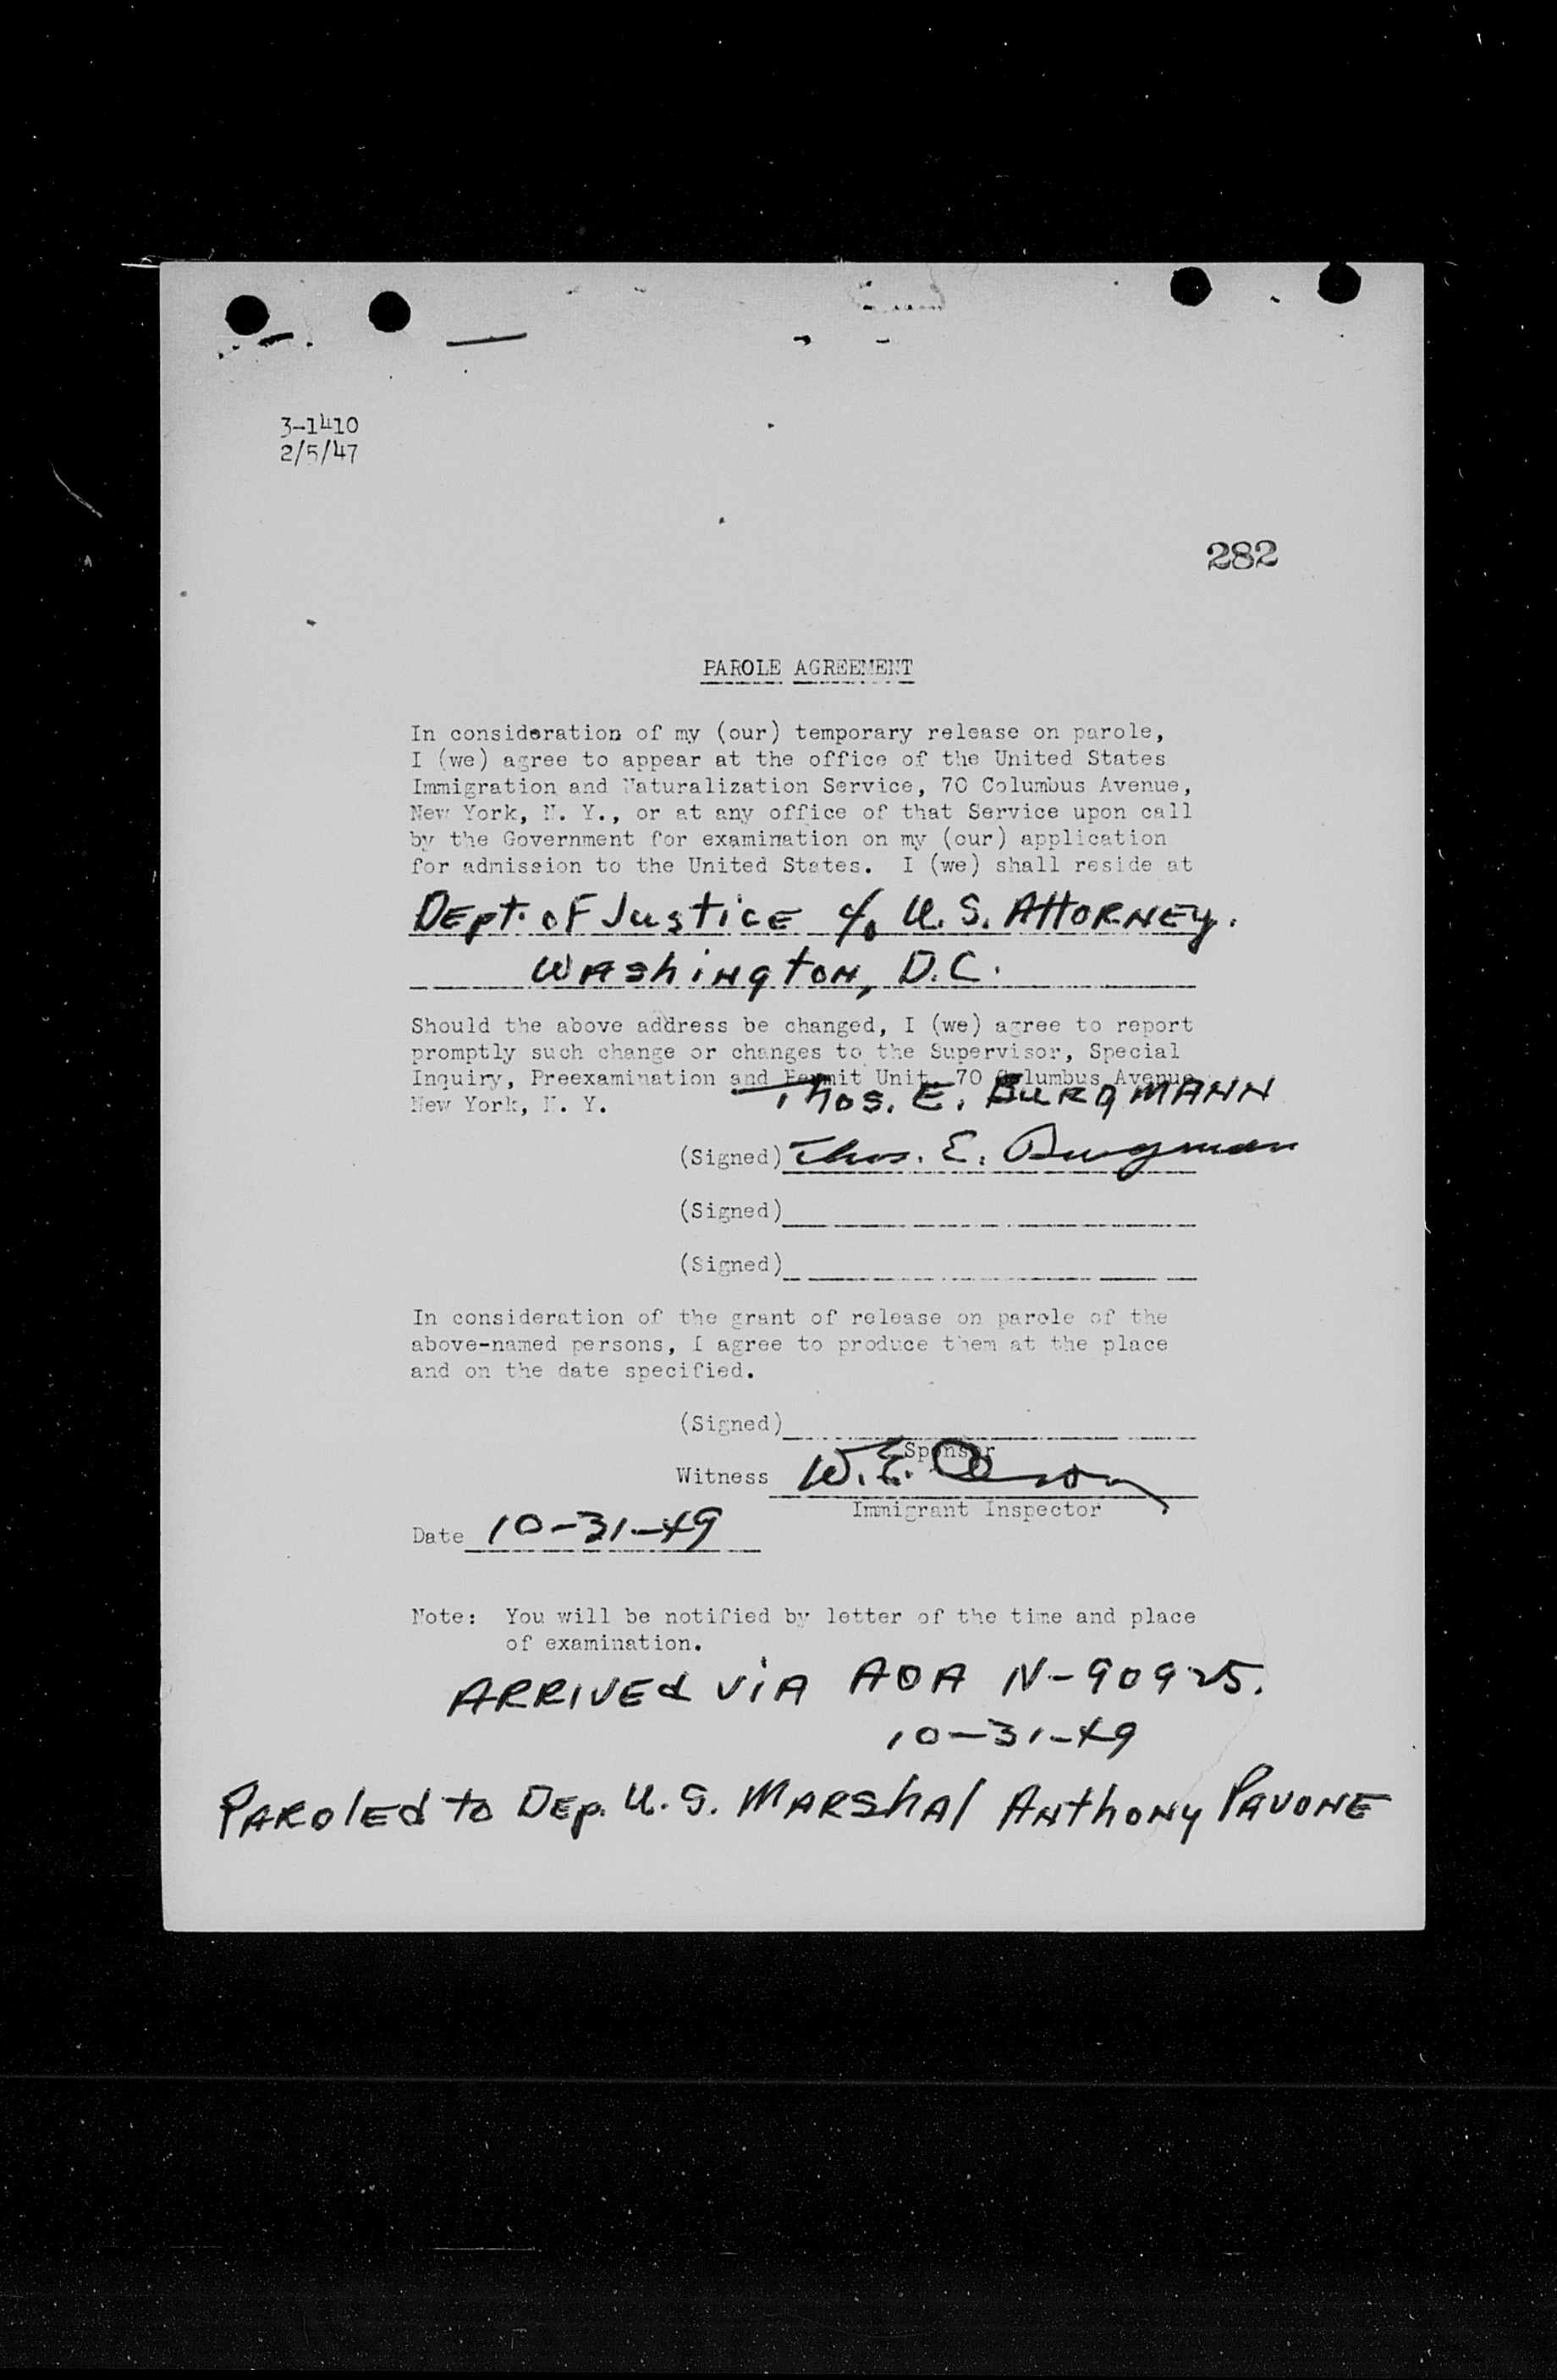 3-1410
2/5/47
282
PAROLE AGREEMENT
In consideration of my (our) temporary release on parole,
I (we) agree to appear at the office of the United States
Immigration and Naturalization Service, 70 Columbus Avenue,
New York, N. Y., or at any office of that Service upon call
by the Government for examination on my (our) application
for admission to the United States. I (we) shall reside at
Dept. of Justice c/o U. S. Attorney.
Washington, D.C.
Should the above address be changed, I (we) agree to report
promptly such change or changes to the Supervisor, Special
Inquiry, Preexamination and Permit Unit, 70 Columbus Avenue
New York, N. Y.
Thos. E. Burgmann
(Signed) Thos. E. Burgman
(Signed)
(Signed)
In consideration of the grant of release on parole of the
above-named persons, I agree to produce them at the place
and on the date specified.
(Signed)
Sponsor
Witness W. E.
Immigrant Inspector
Date 10-31-49
Note: You will be notified by letter of the time and place
of examination.
Arrived via AOA N-90925.
10-31-49
Paroled to Dep. U. S. Marshal Anthony Pavone